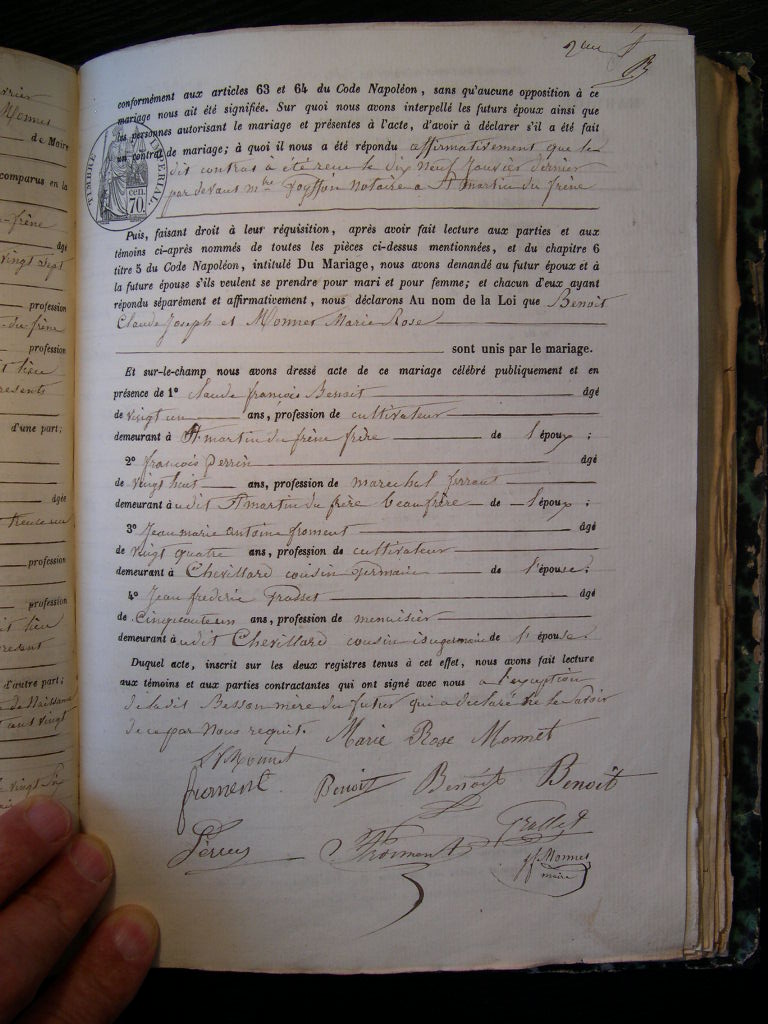 conformément aux articles 63 et 64 du Code Napoléon, sans qu'aucune opposition à ce
mariage nous ait été signifiée. Sur quoi nous avons interpellé les futurs époux ainsi que
les personnes autorisant le mariage et présentes à l'acte, d'avoir à déclarer s'il a été fait
un contrat de mariage; à quoi il nous a été répondu affirmativement que le
dit contras à été recu le dix neuf Janvier dernier
par devans mtre notaire a St martin du frène
TIMBRE IMPÉRIAL
70 cen.
Puis, faisant droit à leur réquisition, après avoir fait lecture aux parties et aux
témoins ci-après nommés de toutes les pièces ci-dessus mentionnées, et du chapitre 6
titre 5 du Code Napoléon, intitulé Du Mariage, nous avons demandé au futur époux et à
la future épouse s'ils veulent se prendre pour mari et pour femme; et chacun d'eux ayant
répondu séparément et affirmativement, nous déclarons Au nom de la Loi que Benoit
Claude Joseph et Monnet Marie Rose
sont unis par le mariage.
Et sur-le-champ nous avons dressé acte de ce mariage célébré publiquement et en
présence de 1° Claude françois Benoit âgé
de vingt un ans, profession de cultivateur
demeurant à St martin du frène frère de l'époux ;
2° françois Perrin âgé
de vingt huit ans, profession de marechal ferrant
demeurant à udit St martin du frène beaufrère de l'époux ;
3° Jean marie antoine froment âgé
de vingt quatre ans, profession de cultivateur
demeurant à Chevillard cousin germain de l'épouse ;
4° Jean frederic Grasset âgé
de Cinquante un ans, profession de menuisier
demeurant à udit Chevillard cousin isu germain de l'épouse.
Duquel acte, inscrit sur les deux registres tenus à cet effet, nous avons fait lecture
aux témoins et aux parties contractantes qui ont signé avec nous a l'exception
de ladit Besson mère du futur qui a declaré ne le savoir
de ce par Nous requit.
Marie Rose Monnet
Monnet
froment Benoit Benoit Benoit
Froment
Monnet
maire
de Maire
comparus en la
âgé
vingt sept
profession
du frène
profession
d'une part;
âgée
profession
profession
d'autre part;
de Naissance